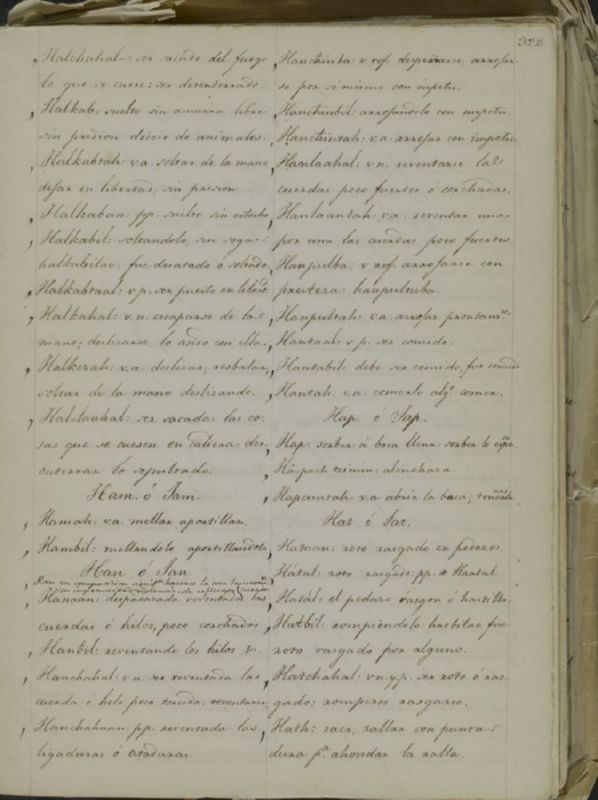 322
Halchahal: ser sacado del fuego
lo que se cuece: ser desenterrado.
Halkab: suelto sin amarra libre
sin prision dicese de animales.
Halkabtah: v.a. soltar de la mano
dejar en libertad; sin prision
Halkaban: pp. suelto sin estorbo
Halkabil: soltandolo, sin soga:
halkabilac: fue desatado ó soltado.
Halkabtaal: v.p. ser puesto en libert.
Halkahal: v.n. escaparse de la
mano; deslizarse lo asido con ella.
Halkezah: v.a. deslizar, resbalar,
soltar de la mano deslizando.
ser sacadas las co-
sas que se cuecen en calera: des-
enterrar lo sepultado.
Ham. ó Jam.
Hamah: v.a. mellar aportillar.
Hambil: mellandolo aportillandolo
Han ó Jan
Han en composicion
Hanaan: despacarada reventada las
cuerdas é hilos, poco corchados
Hanbil: reventando los hilos &.
Hanchahal: v.n. ser reventada la
cuerda é hilo poco torcida: reventarse
Hanchahaan: pp. reventada las
ligaduras ó ataduras.
Hanchinba: v. ref. despeñarse, arrojar-
se por si mismo con impetu.
Hanchinbil: arrojandolo con impetu.
Hanchintah: v.a. arrojar con impetu.
Hanlaahal: v.n. reventarse las
cuerdas poco fuertes ó corchadas.
Hanlaantah: v.a. reventar una
por una las cuerdas poco fuertes.
Hanpulba: v. ref. arrojarse con
presteza: hanpulnba.
Hanpultah: v.a. arrojar prontam.te
Hantaal: v.p. ser comido.
Hantabil: debe ser comido, fue comido
Hantah: v.a. comerlo alg.o comer.
Hap. ó Jap.
Hap: sorber á boca llena: sorber lo
Hapach tzimin: almohaza
Hapcuntah: v.a. abrir la boca;
Hat ó Jat.
Hataan: roto rasgado en pedazos.
Hatal: roto rasgado: pp. de Haatal.
Hatal: el pedazo rasgon ó hastilla.
Hatbil: rompiendolo: hatbilac fue
roto rasgado por alguno.
Hatchahal: v.n. y p. ser roto ó ras-
gado: romperse rasgarse.
Hath: raer, rallar con punta
dura p.a ahondar la ralla.